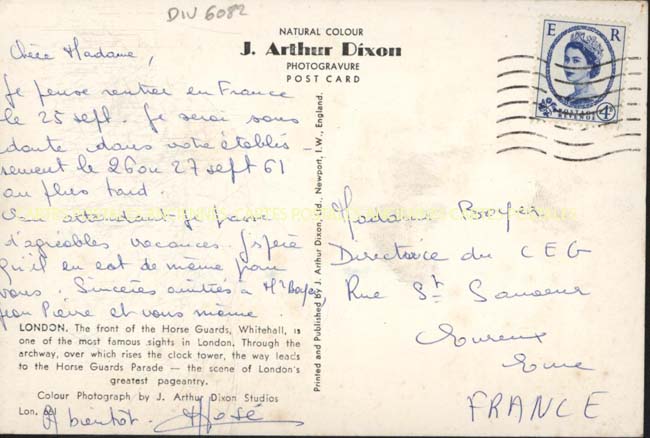 DIV 6082
NATURAL COLOUR
J. Arthur Dixon
PHOTOGRAVURE
POST CARD
E R
POSTAGE
REVENUE
4D
Chère Madame,
Je pense rentrer en France
le 25 sept. Je serai sans
doute dans votre établis-
sement le 26 ou 27 sept 61
au plus tard.
En attendant je passe
d'agréables vacances. J'espère
qu'il en est de même pour
vous. Sincères amitiés à Mr Boyer,
Jean Pierre et vous même.
LONDON. The front of the Horse Guards, Whitehall, is
one of the most famous sights in London. Through the
archway, over which rises the clock tower, the way leads
to the Horse Guards Parade — the scene of London's
greatest pageantry.
Colour Photograph by J. Arthur Dixon Studios
Lon.
A bientôt. José
Printed and Published by J. Arthur Dixon, Ltd., Newport, I.W., England.
Madame Boyer
Directrice du CEG
Rue St Sauveur
Evreux
Eure
FRANCE